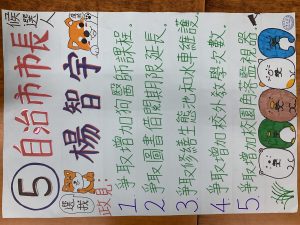 候選人
⑤自治市市長
楊智宇
選我
政見：
1. 爭取增加狗醫師課程。
2. 爭取圖書借閱期限延長。
3. 爭取修繕生態池和水車維護
4. 爭取增加校外教學次數。
5. 爭取增加校園角落監視器